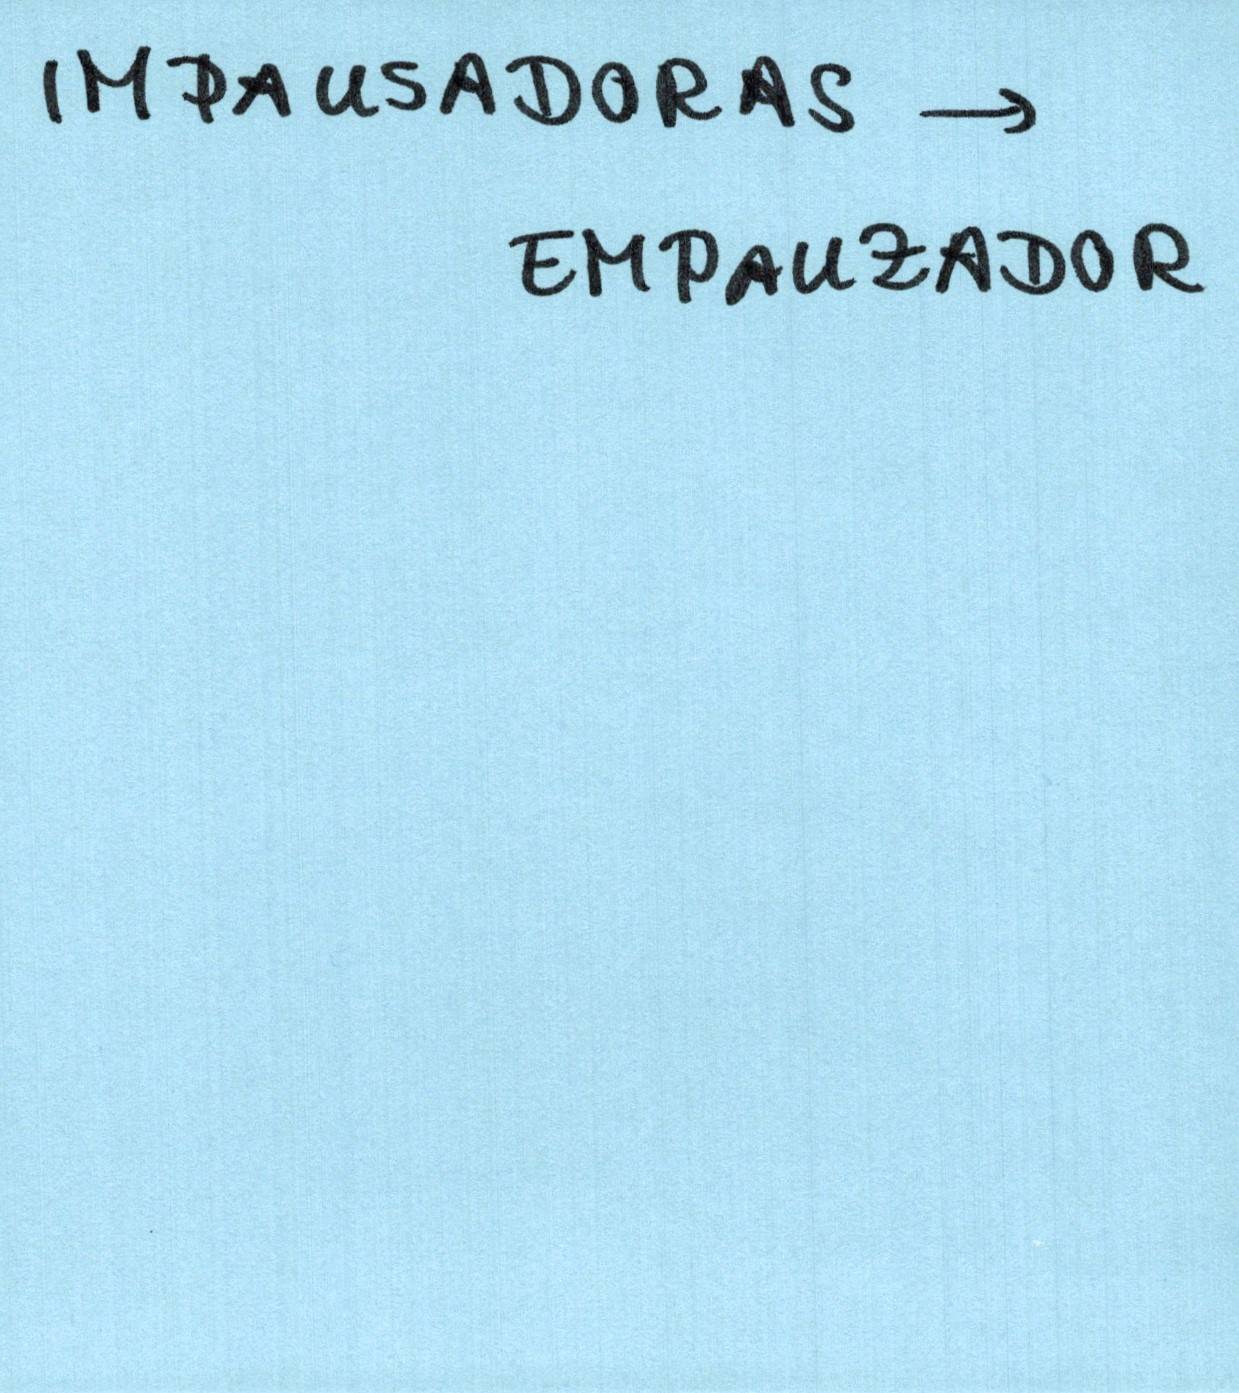 IMPAUSADORAS →
EMPAUZADOR